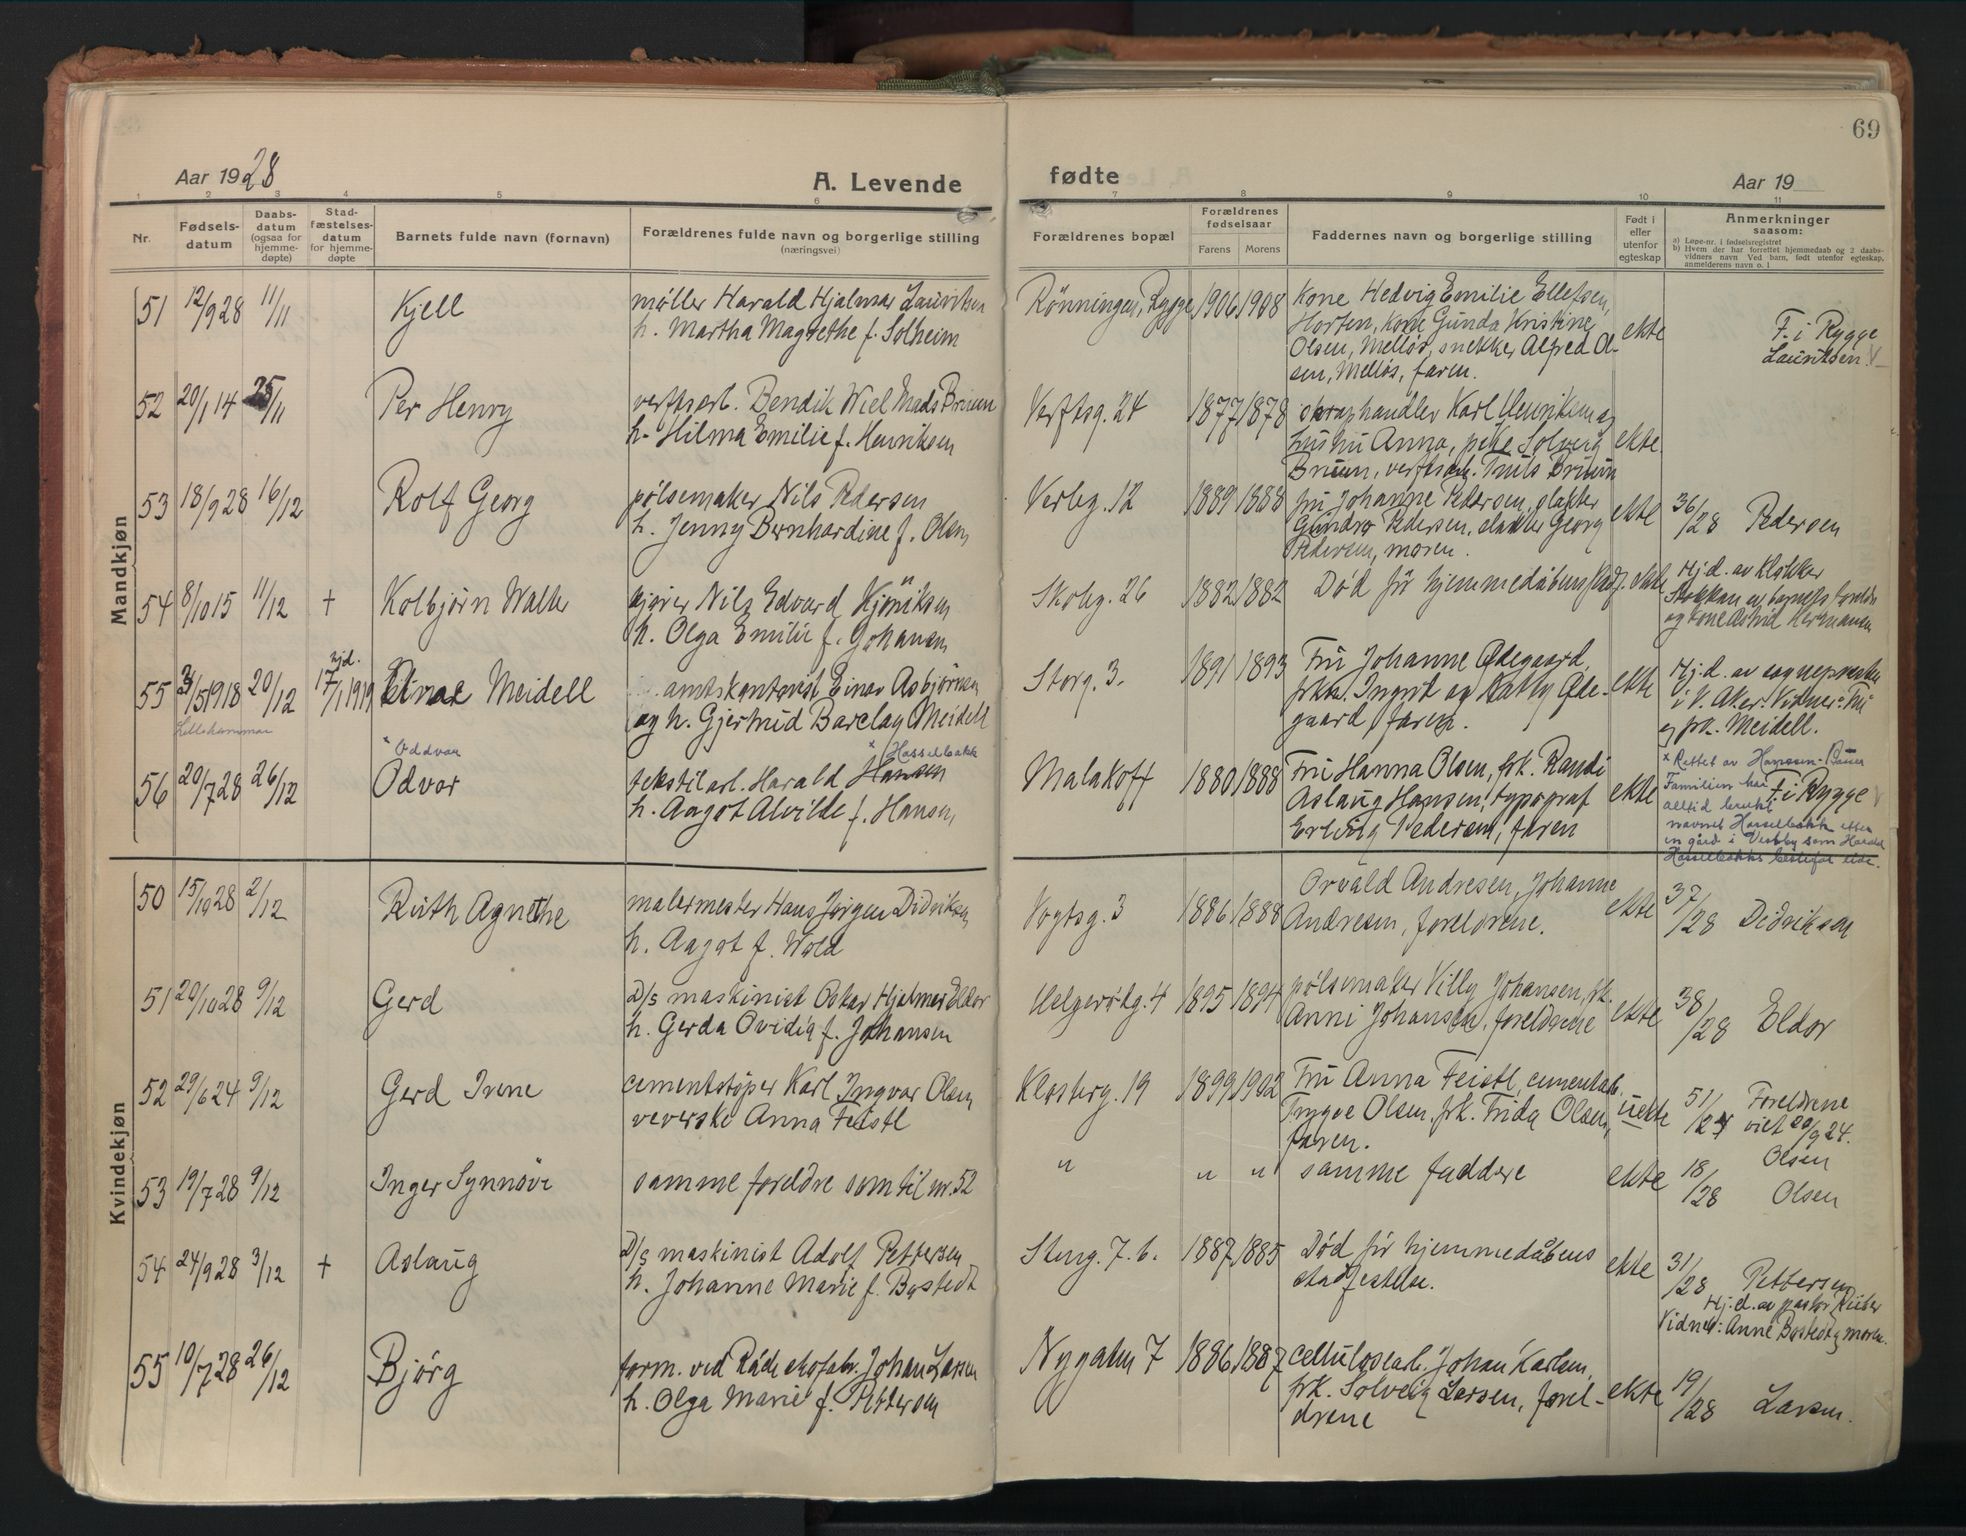 69
Aar 1928
A. Levende
fødte
Aar 19
1 2 3 4 5 6 7 8 9 10 11
Nr.
Fødsels-
datum
Daabs-
datum
(ogsaa for
hjemme-
døpte)
Stad-
fæstelses-
datum
for hjemme-
døpte
Barnets fulde navn (fornavn)
Forældrenes fulde navn og borgerlige stilling
(næringsvei)
Forældrenes bopæl
Forældrenes
fødselsaar
Farens Morens
Faddernes navn og borgerlige stilling
Født i
eller
utenfor
egteskap
Anmerkninger
saasom:
a) Løpe-nr. i fødselsregistret
b) Hvem der har forrettet hjemmedaab og 2 daabs-
vidners navn Ved barn, født utenfor egteskap,
anmelderens navn o. l
Mandkjøn
51 12/9 28 11/11 Kjell
møller Harald Hjalmar Lauritsen
h. Martha Magrethe f. Solheim
Rönningen, Rygge 1906 1908
Kone Hedvig Emilie Ellefsen,
Horten, kone Gunda Kristine
Olsen, Melløs, snekker Alfred Ol-
sen, Melløs, faren.
ekte
F. i Rygge
Lauritsen
52 20/1 14 25/11 Per Henry
verftsarb. Bendik Wiel Mads Bruun
h. Hilma Emilie f. Henriksen
Verftsg. 24 1877 1878
skraphandler Karl Henriksen og
hustru Anna, pike Solveig
Bruun, verftsarb. Truls Bruun
ekte
53 18/9 28 16/12 Rolf Georg
pølsemaker Nils Pedersen
h. Jenny Bernhardine f. Olsen
Verbg. 12 1889 1888
fru Johanne Pedersen, slakter
Gundro Pedersen, slakter Georg
Pedersen, moren.
ekte
36/28 Pedersen
54 8/10 15 11/12 + Kolbjørn Walter
kjører Nils Edvard
h. Olga Emilie f. Johansen
Skobg. 26 1882 1882
Død før hjemmedåbens stadf.
ekte
Hj.d. av Klokker
og kone Astrid Hermansen
55 3/5 1918 20/12 hjd. 17/1 1919 Einar Meidell
Lillehammer
amtskontorist Einar Asbjörnsen
og h. Gjertrud Barclay Meidell
Storg. 3. 1891 1893
Fru Johanne Ødegaard,
frkn. Ingrid og Kathy Øde-
gaard, faren.
ekte
Hj.d. av sogneprest
i V. Aker. Vidner: Fru
og frk. Meidell.
56 20/7 28 26/12
× Oddvar
Odvar
× Hasselbakk
tekstilarb. Harald Hansen
h. Aagot Alvilde f. Hansen
Malakoff 1880 1888
Fru Hanna Olsen, frk. Randi
Aslaug Hansen, typograf
Erling Pedersen, faren
ekte
F. i Rygge
× Rettet av Hanssen-Bauer
Familien har
alltid brukt
navnet Hasselbakk etter
en gård i Vestby som Harald
Hasselbakks bestefar eide.
Kvindekjøn
50 15/10 28 2/12 Ruth Agnethe
malermester Hans Jørgen Didriksen
h. Aagot f. Wold
Vogtsg. 3 1886 1888
Orvald Andresen, Johanne
Andresen, foreldrene.
ekte
37/28 Didriksen
51 20/10 28 9/12 Gerd
D/s maskinist Oskar Hjalmar Eldor
h. Gerda Ovidia f. Johansen
Helgerødg. 4 1895 1894
pølsemaker Villy Johansen, frk.
Anni Johansen, foreldrene
ekte
38/28 Eldor
52 29/6 24 9/12 Gerd Irene
cementstøper Karl Ingvar Olsen
veverske Anna Feistl
Klosterg. 19 1899 1902
Fru Anna Feistl, cementarb.
Trygve Olsen, frk. Frida Olsen,
faren.
uekte
51/24 Foreldrene
viet 20/9 24.
Olsen
53 19/7 28 9/12 Inger Synnöve
samme foreldre som til nr. 52
" " "
samme faddere
ekte
18/28 Olsen
54 24/9 28 3/12 + Aslaug
D/s maskinist Adolf Pettersen
h. Johanne Marie f. Bastedt
Steng. 7. b. 1887 1885
Død før hjemmedåbens
stadfestelse.
ekte
31/28 Pettersen
Hj.d. av pastor
Vidner: Anne Bastedt, moren.
55 10/7 28 26/12 Bjørg
form. ved Råde skofabr. Johan Larsen
h. Olga Marie f. Pettersen
Nygaten 7 1886 1887
cellulosearb. Johan Karlsen,
frk. Solveig Larsen, forel-
drene
ekte
19/28 Larsen.